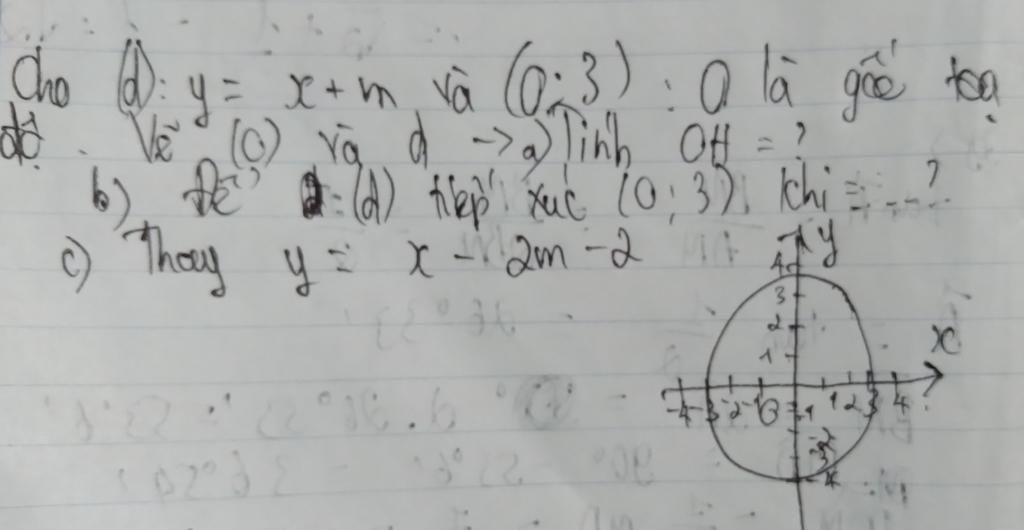 Cho (d): y = x + m và (O; 3) : O là gốc toạ
độ. Vẽ (O) và d → a) Tính OH = ?
b) Để (d) tiếp xúc (O; 3) khi = ....?
c) Thay y = x - 2m - 2
y
4
3
2
1
x
-4 -3 -2 -1 0 1 2 3 4
-1
-2
-3
-4